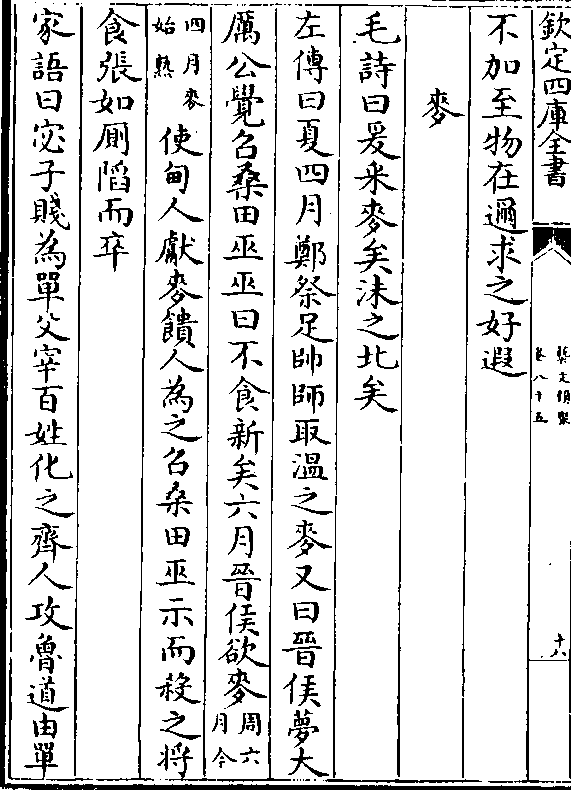 欽定四庫全書
藝文類聚
卷八十五
十八
不加至物在邇求之好遐
麥
毛詩曰爰采麥矣沬之北矣
左傳曰夏四月鄭祭足帥師取溫之麥又曰晉侯夢大
厲公覺召桑田巫巫曰不食新矣六月晉侯欲麥周六月今
四月麥始熟使甸人獻麥饋人為之召桑田巫示而殺之将
食張如厠䧟而卒
家語曰宓子賤為單父宰百姓化之齊人攻魯道由單